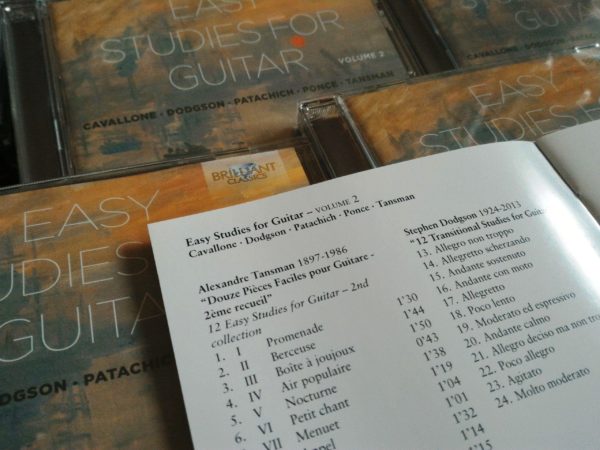 EASY
STUDIES FOR
GUITAR
VOLUME 2
CAVALLONE · DODGSON · PATACHICH · PONCE · TANSMAN
CAVALLONE · DODGSON
EASY
STUDIES FOR
BRILLIANT
CLASSICS
EASY
STUDIES
GUITA
DODGSON · PATACHI
Easy Studies for Guitar – VOLUME 2
Cavallone · Dodgson · Patachich · Ponce · Tansman
Alexandre Tansman 1897-1986
“Douze Pièces Faciles pour Guitare -
2ème recueil”
12 Easy Studies for Guitar – 2nd
collection
1. I Promenade 1'30
2. II Berceuse 1'44
3. III Boite à joujoux 1'50
4. IV Air populaire 0'43
5. V Nocturne 1'38
6. VI Petit chant 1'19
VII Menuet 1'04
1'01
1'32
1'14
1'15
Stephen Dodgson 1924-2013
“12 Transitional Studies for Guita
13. Allegro non troppo
14. Allegretto scherzando
15. Andante sostenuto
16. Andante con moto
17. Allegretto
18. Poco lento
19. Moderato ed espressivo
20. Andante calmo
21. Allegro deciso ma non tro
22. Poco allegro
23. Agitato
24. Molto moderato